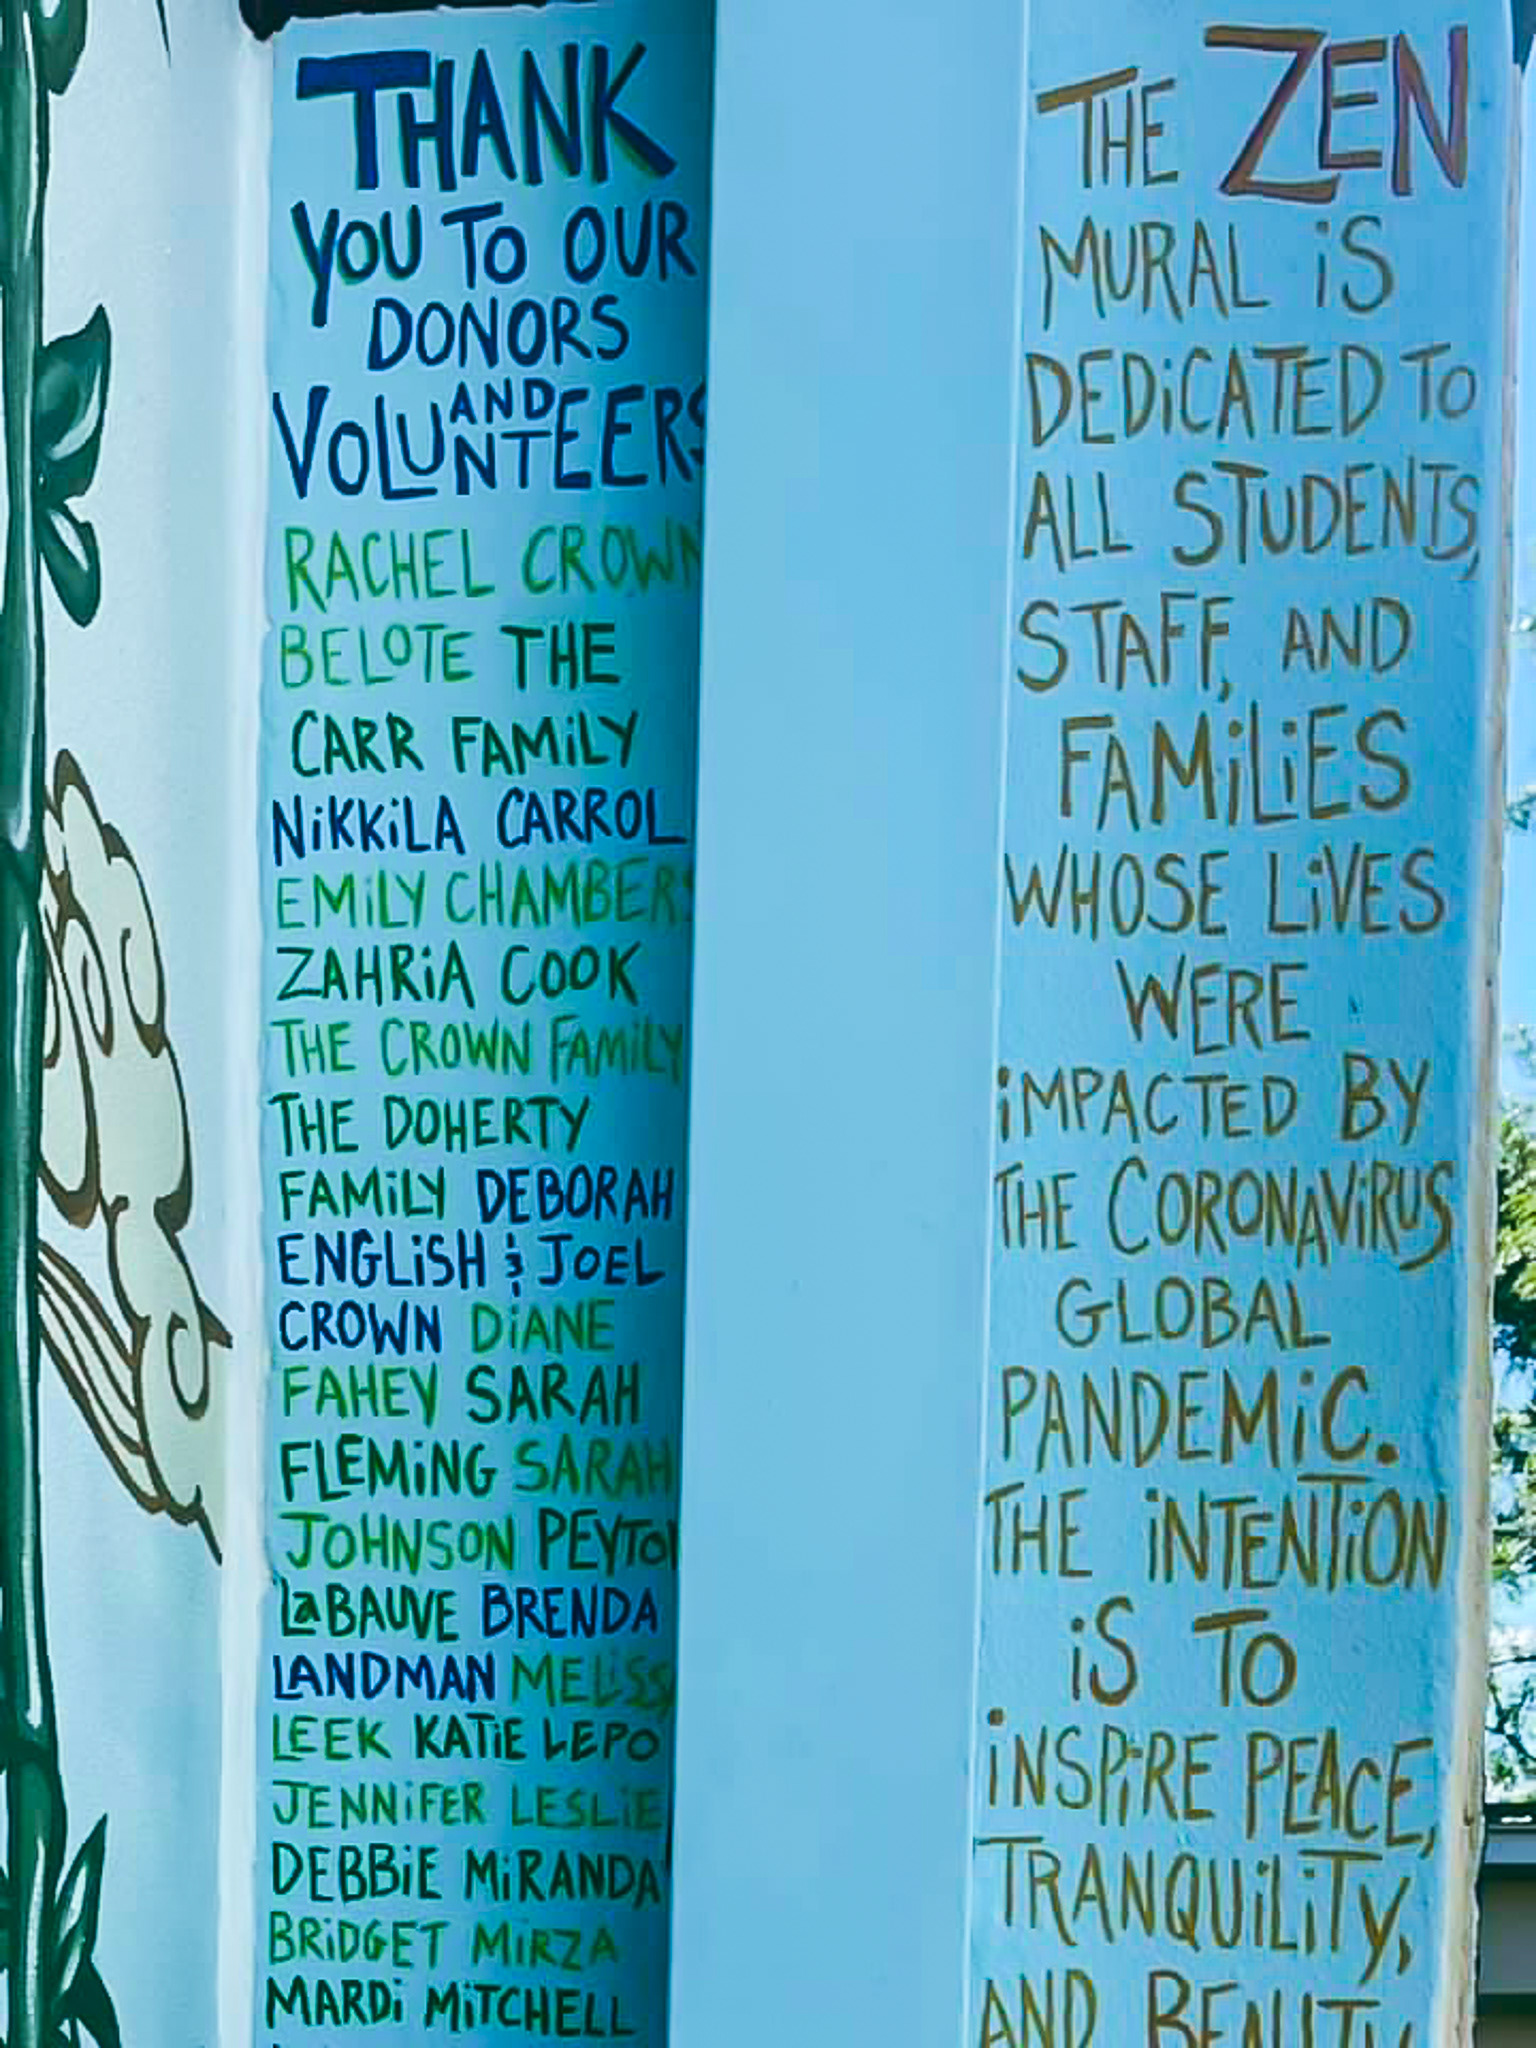 THANK
YOU TO OUR
DONORS
AND
VOLUNTEERS
RACHEL CROWN
BELOTE THE
CARR FAMILY
NIKKILA CARROL
EMILY CHAMBERS
ZAHRIA COOK
THE CROWN FAMILY
THE DOHERTY
FAMILY DEBORAH
ENGLISH & JOEL
CROWN DIANE
FAHEY SARAH
FLEMING SARAH
JOHNSON PEYTO
LaBAUVE BRENDA
LANDMAN MELISS
LEEK KATIE LEPO
JENNIFER LESLIE
DEBBIE MIRANDA
BRIDGET MIRZA
MARDI MITCHELL
THE ZEN
MURAL IS
DEDICATED TO
ALL STUDENTS,
STAFF, AND
FAMILIES
WHOSE LIVES
WERE
IMPACTED BY
THE CORONAVIRUS
GLOBAL
PANDEMIC.
THE INTENTION
IS TO
INSPIRE PEACE,
TRANQUILITY,
AND BEAUTY